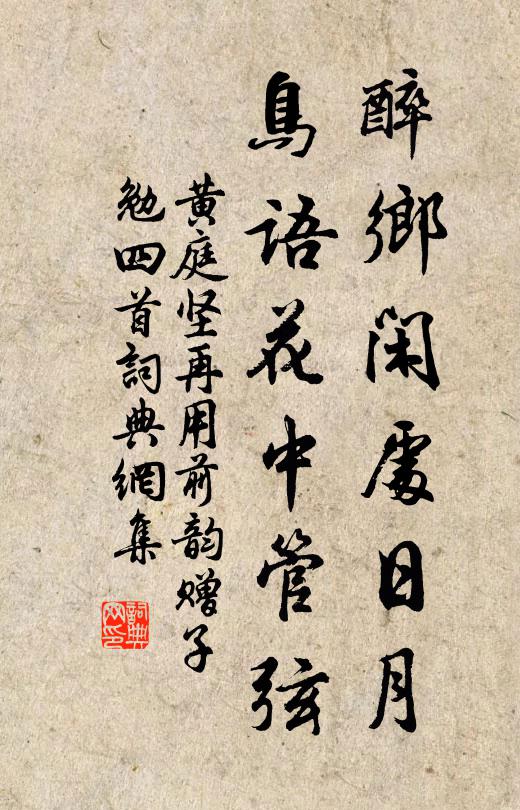 醉鄉閑處日月
鳥語花中管弦
黄庭坚再用前韵赠子
勉四首詞典網集
詞典
网印